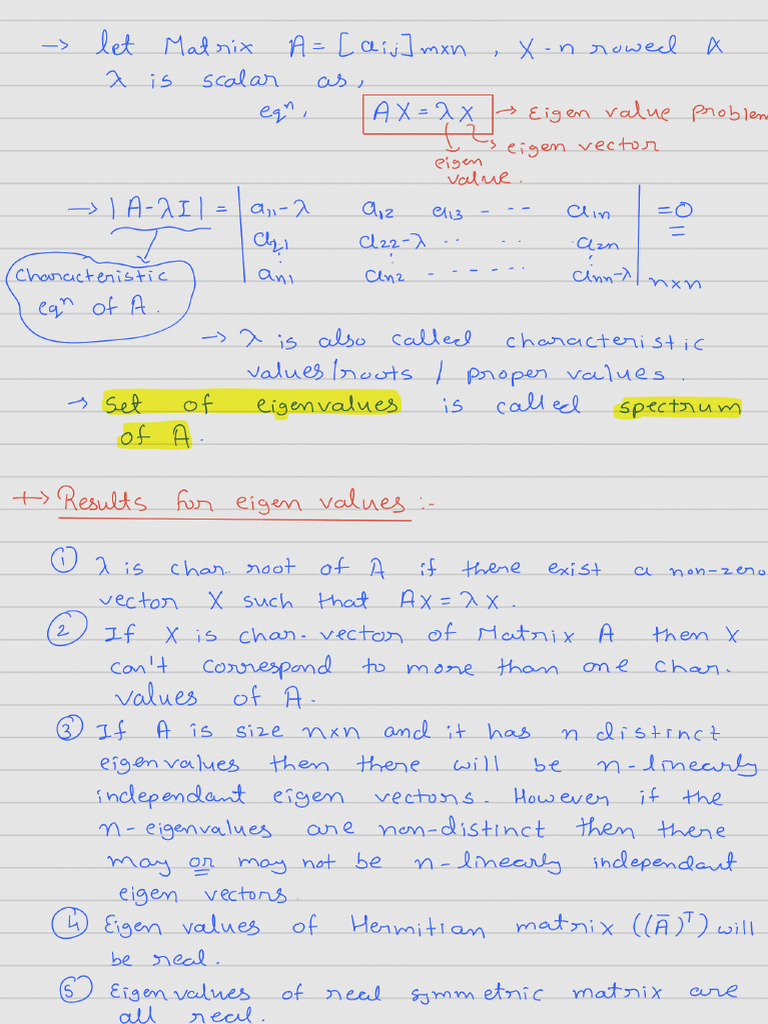 → let Matrix A = [aij]mxn , X-n rowed &
λ is scalar as,
eqⁿ, AX = λX → Eigen value problem
→ eigen vector
eigen
value.
→ |A-λI| = | a11-λ a12 a13 - -- a1n | =0
a21 a22-λ .. .. a2n
an1 an2 - - - - - - ann-λ | nxn
Characteristic
eqⁿ of A.
→ λ is also called characteristic
values/roots / proper values.
→ set of eigenvalues is called spectrum
of A.
+→ Results for eigen values :-
① λ is char. root of A if there exist a non-zero
vector X such that AX = λX.
② If X is char. vector of Matrix A then X
can't correspond to more than one char.
values of A.
③ If A is size nxn and it has n distinct
eigenvalues then there will be n-linearly
independant eigen vectors. However if the
n-eigenvalues are non-distinct then there
may or may not be n-linearly independant
eigen vectors.
④ Eigen values of Hermitian matrix ((Ā)ᵀ) will
be real.
⑤ Eigenvalues of real symmetric matrix are
all real.